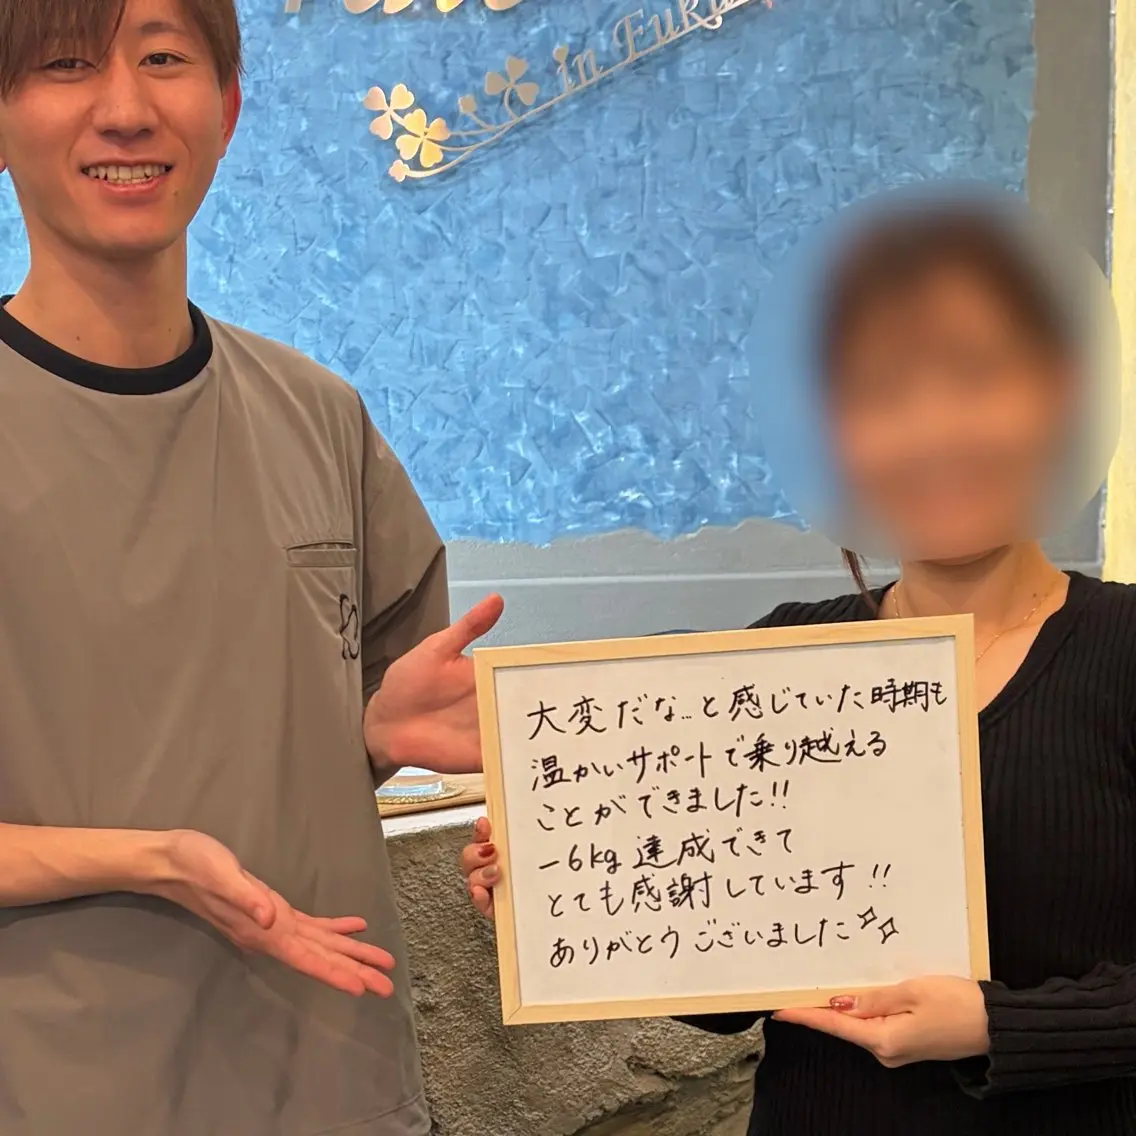 in Fuku
大変だな…と感じていた時期も
温かいサポートで乗り越える
ことができました!!
-6kg 達成できて
とても感謝しています!!
ありがとうございました✨